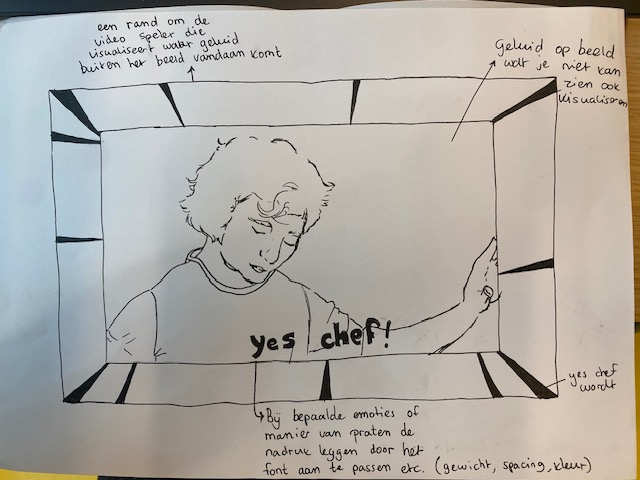 een rand om de
video speler die
visualiseert waar geluid
buiten het beeld vandaan komt
Geluid op beeld
wat je niet kan
zien ook
visualiseren
yes chef!
yes chef
wordt
Bij bepaalde emoties of
manier van praten de
nadruk leggen door het
font aan te passen etc. (gewicht, spacing, kleur)